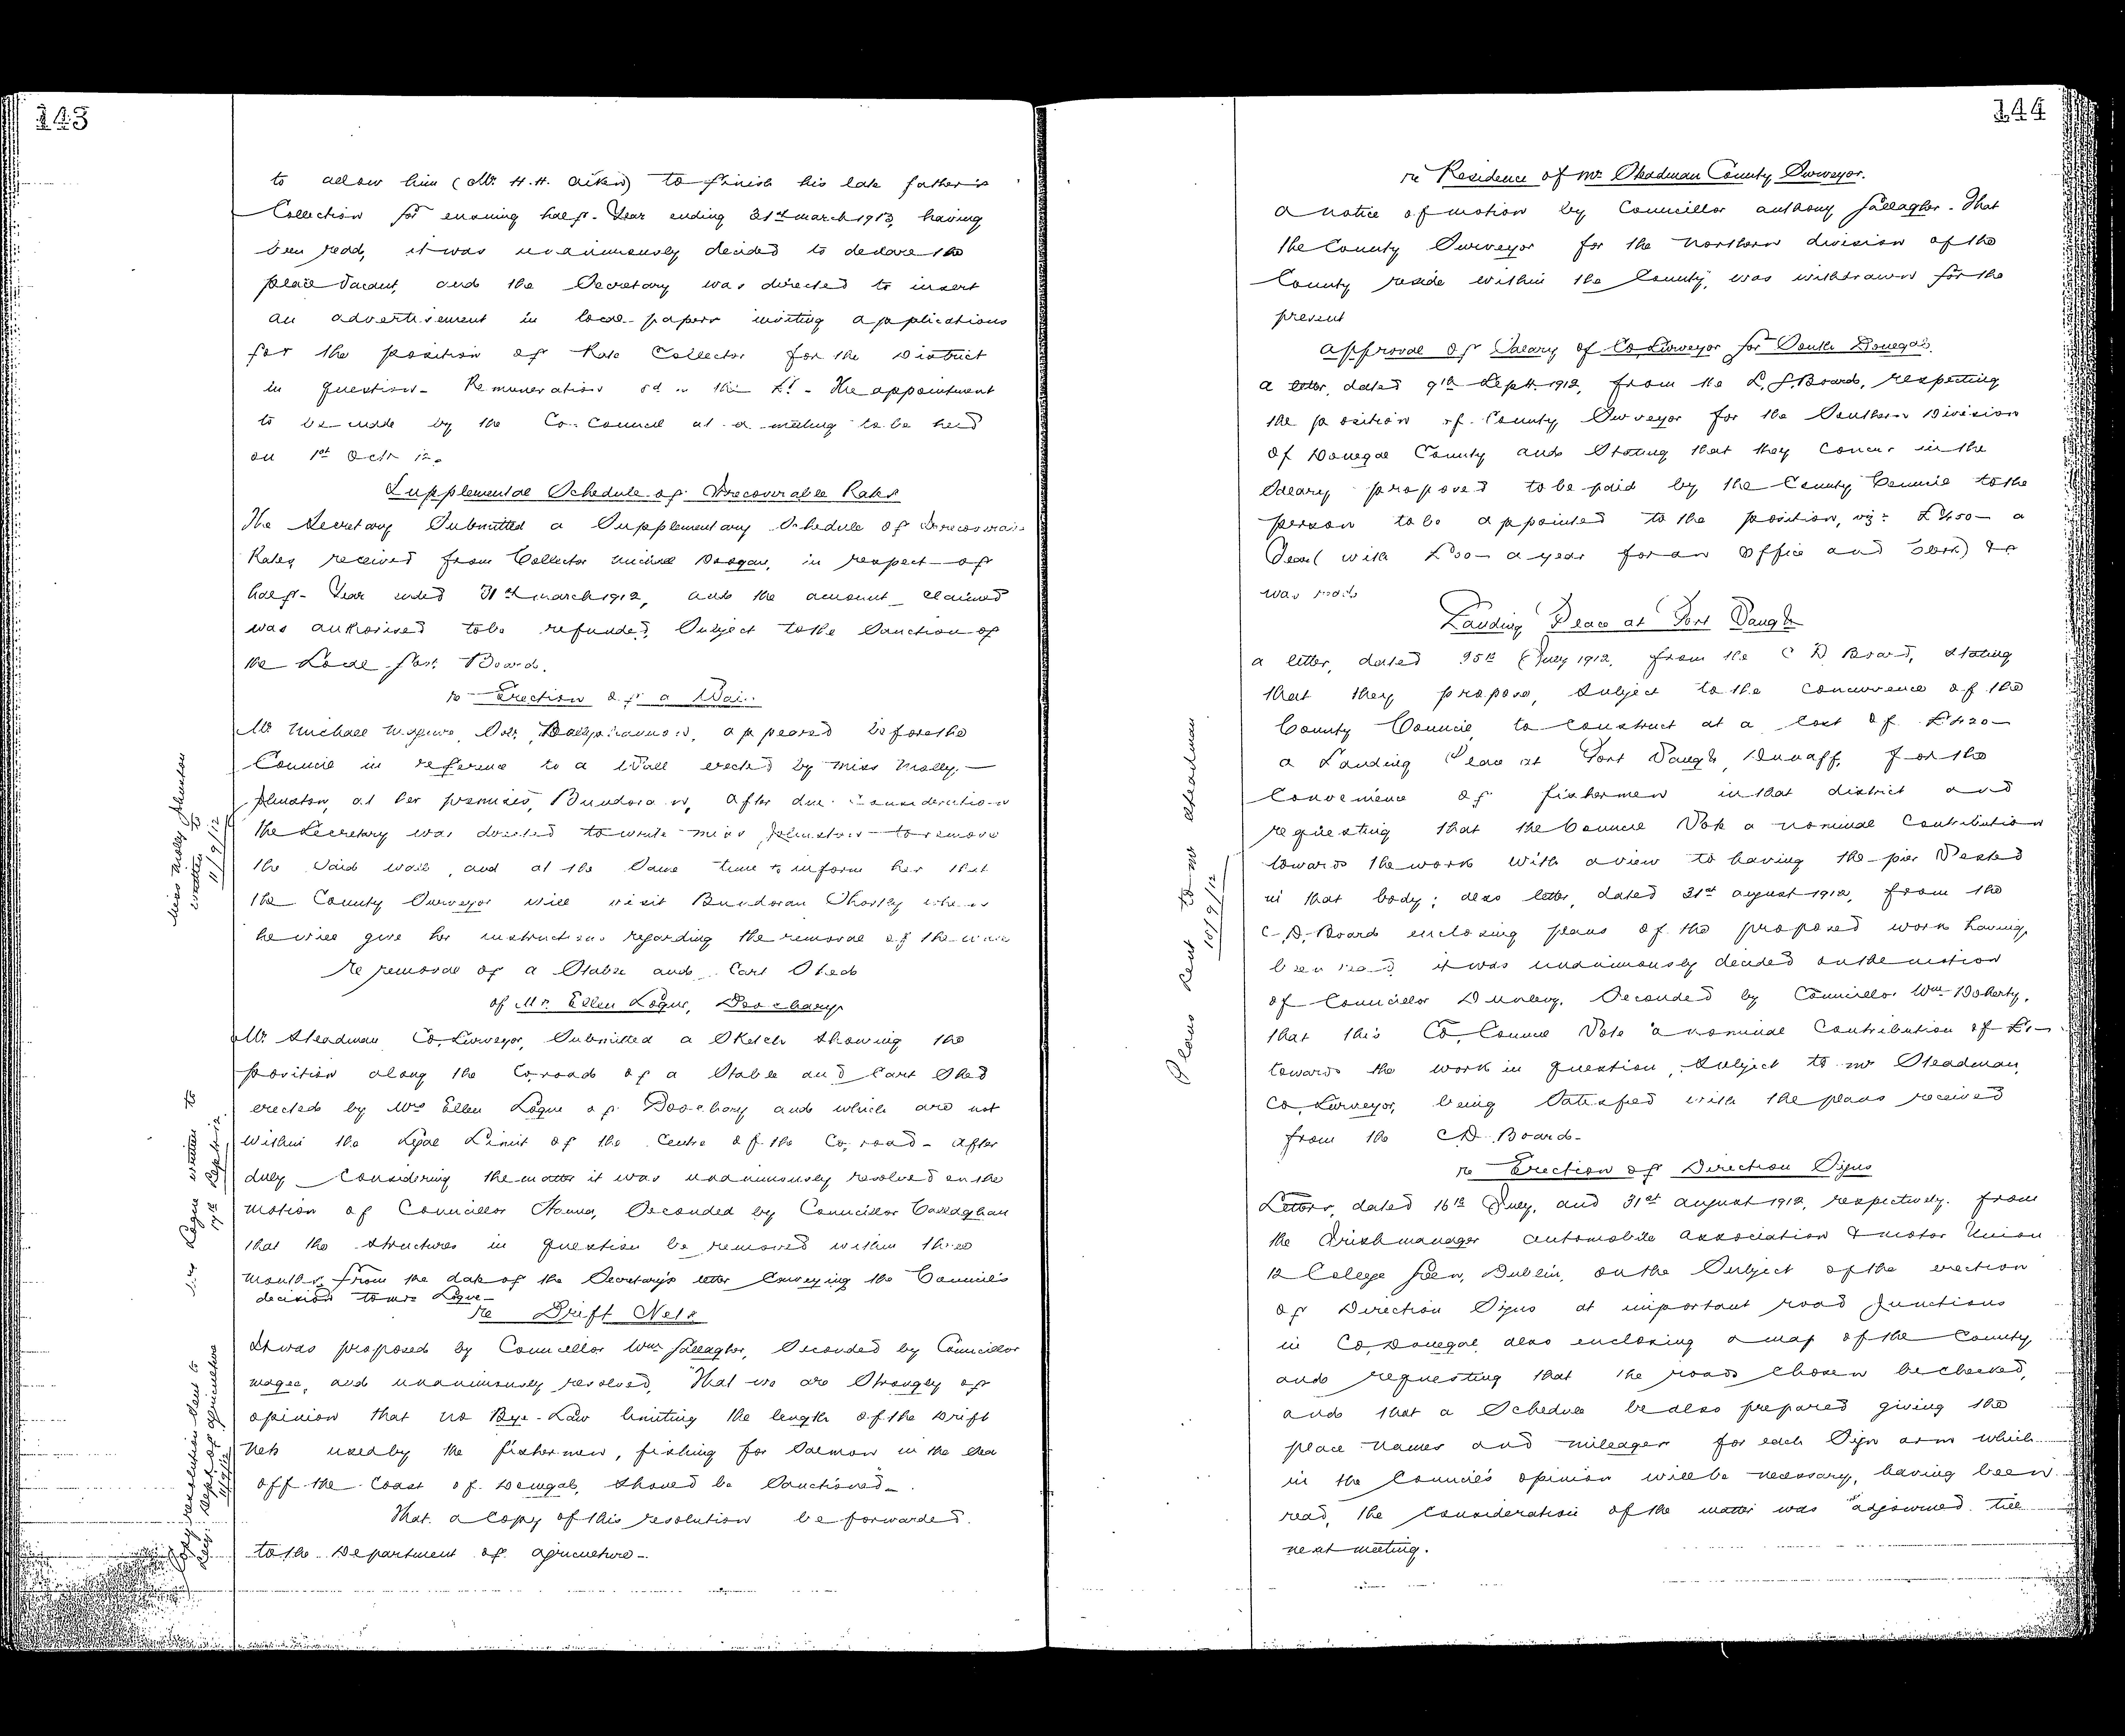 143
to allow him (Mr. H.H. Aiken) to finish his late father's
Collection for ensuing half-Year ending 31st March 1913, having
been read, it was unanimously decided to declare the
place vacant, and the Secretary was directed to insert
an advertisement in local papers inviting applications
for the position of Rate Collector for the District
in question - Remuneration in the £1 - The appointment
to be made by the Co. Council at a meeting to be held
on 1st Octr 12.
Supplemental Schedule of Irrecoverable Rates
The Secretary Submitted a Supplementary Schedule of Irrecoverable
Rates received from Collector Michael in respect of
half-Year ended 31st March 1912, and the amount claimed
was authorised to be refunded, Subject to the Sanction of
the Local Govt. Board.
re Erection of a Wall
Mr Michael Maguire, Solr, Ballyshannon, appeared before the
Council in reference to a Wall erected by Miss Molly
Johnston, at her premises, Bundoran, After due consideration
the Secretary was directed to write Miss Johnston to remove
the said wall, and at the Same time to inform her that
the County Surveyor will visit Bundoran Shortly when
he will give her instructions regarding the removal of the wall
Miss Molly Johnston
written to
11/9/12
re removal of a Stable and Cart Shed
of Mrs Ellen Logue, Doochary
Mr. Steadman Co. Surveyor, Submitted a Sketch showing the
position along the Co. road of a Stable and Cart Shed
erected by Mrs Ellen Logue of Doochary and which are not
within the Legal Limit of the Centre of the Co. road - After
duly Considering the matter it was unanimously resolved on the
motion of Councillor Hanna, Seconded by Councillor Callaghan
that the structures in question be removed within three
months from the date of the Secretary's letter Conveying the Council's
decision to Mrs Logue -
Mrs Logue written to
17th Sept. 12
re Drift Nets
It was proposed by Councillor Wm Gallagher, Seconded by Councillor
Magee, and unanimously resolved, "That we are Strongly of
opinion that no Bye-Law limiting the length of the Drift
Nets used by the fishermen, fishing for Salmon in the Sea
off the Coast of Donegal, should be Sanctioned -
That a Copy of this resolution be forwarded
to the Department of Agriculture -
Copy resolution sent to
Secy. Dept. of Agriculture
11/9/12
144
re Residence of Mr Steadman County Surveyor.
A notice of motion by Councillor Anthony Gallagher - That
the County Surveyor for the Northern division of the
County reside within the County, was withdrawn for the
present
Approval of Salary of Co Surveyor for South Donegal.
A letter, dated 9th Sept. 1912, from the L.G. Board, respecting
the position of County Surveyor for the Southern Division
of Donegal County and Stating that they concur in the
Salary proposed to be paid by the County Council to the
person to be appointed to the position, viz: £450 - a
Year (with a year for an Office and Clerk) &c
was read
Landing Place at Port Vaugh
A letter, dated 25th July 1912, from the C D Board, stating
that they propose, subject to the concurrence of the
County Council, to construct at a cost of £420 -
a Landing Place at Port Vaugh, Dunaff, for the
Convenience of fishermen in that district and
requesting that the Council Vote a nominal Contribution
towards the work with a view to having the pier Vested
in that body; also letter, dated 31st August 1912, from the
C.D. Board enclosing plans of the proposed work having
been read it was unanimously decided on the motion
of Councillor Dunlevy, Seconded by Councillor Wm Doherty,
that this Co. Council Vote a nominal Contribution of £1 -
towards the work in question, Subject to Mr Steadman,
Co. Surveyor, being Satisfied with the plans received
from the C.D. Board -
Plans sent to Mr Steadman
10/9/12
re Erection of Direction Signs
Letters, dated 16th July, and 31st August 1912, respectively from
the Irish Manager Automobile Association & Motor Union
12 College Green, Dublin, on the Subject of the erection
of Direction Signs at important road Junctions
in Co. Donegal also enclosing a map of the County,
and requesting that the roads chosen be checked,
and that a Schedule be also prepared giving the
place names and mileages for each Sign arm which
in the Council's opinion will be necessary, having been
read, the consideration of the matter was adjourned till
next meeting.